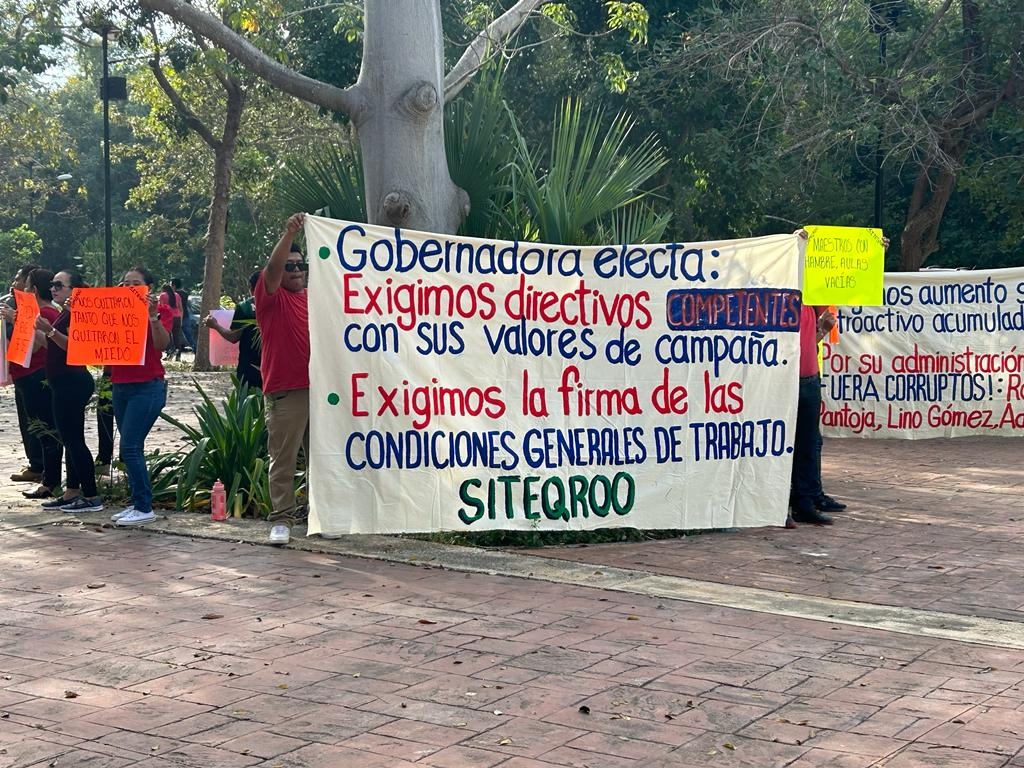 Gobernadora electa:
Exigimos directivos COMPETENTES
con sus valores de campaña.
Exigimos la firma de las
CONDICIONES GENERALES DE TRABAJO.
SITEQROO
NOS QUITARON
TANTO QUE NOS
QUITARON EL
MIEDO
MAESTROS CON
HAMBRE, AULAS
VACÍAS
aumento
acumulad
Por su administración
FUERA CORRUPTOS!:
Pantoja, Lino Gómez,